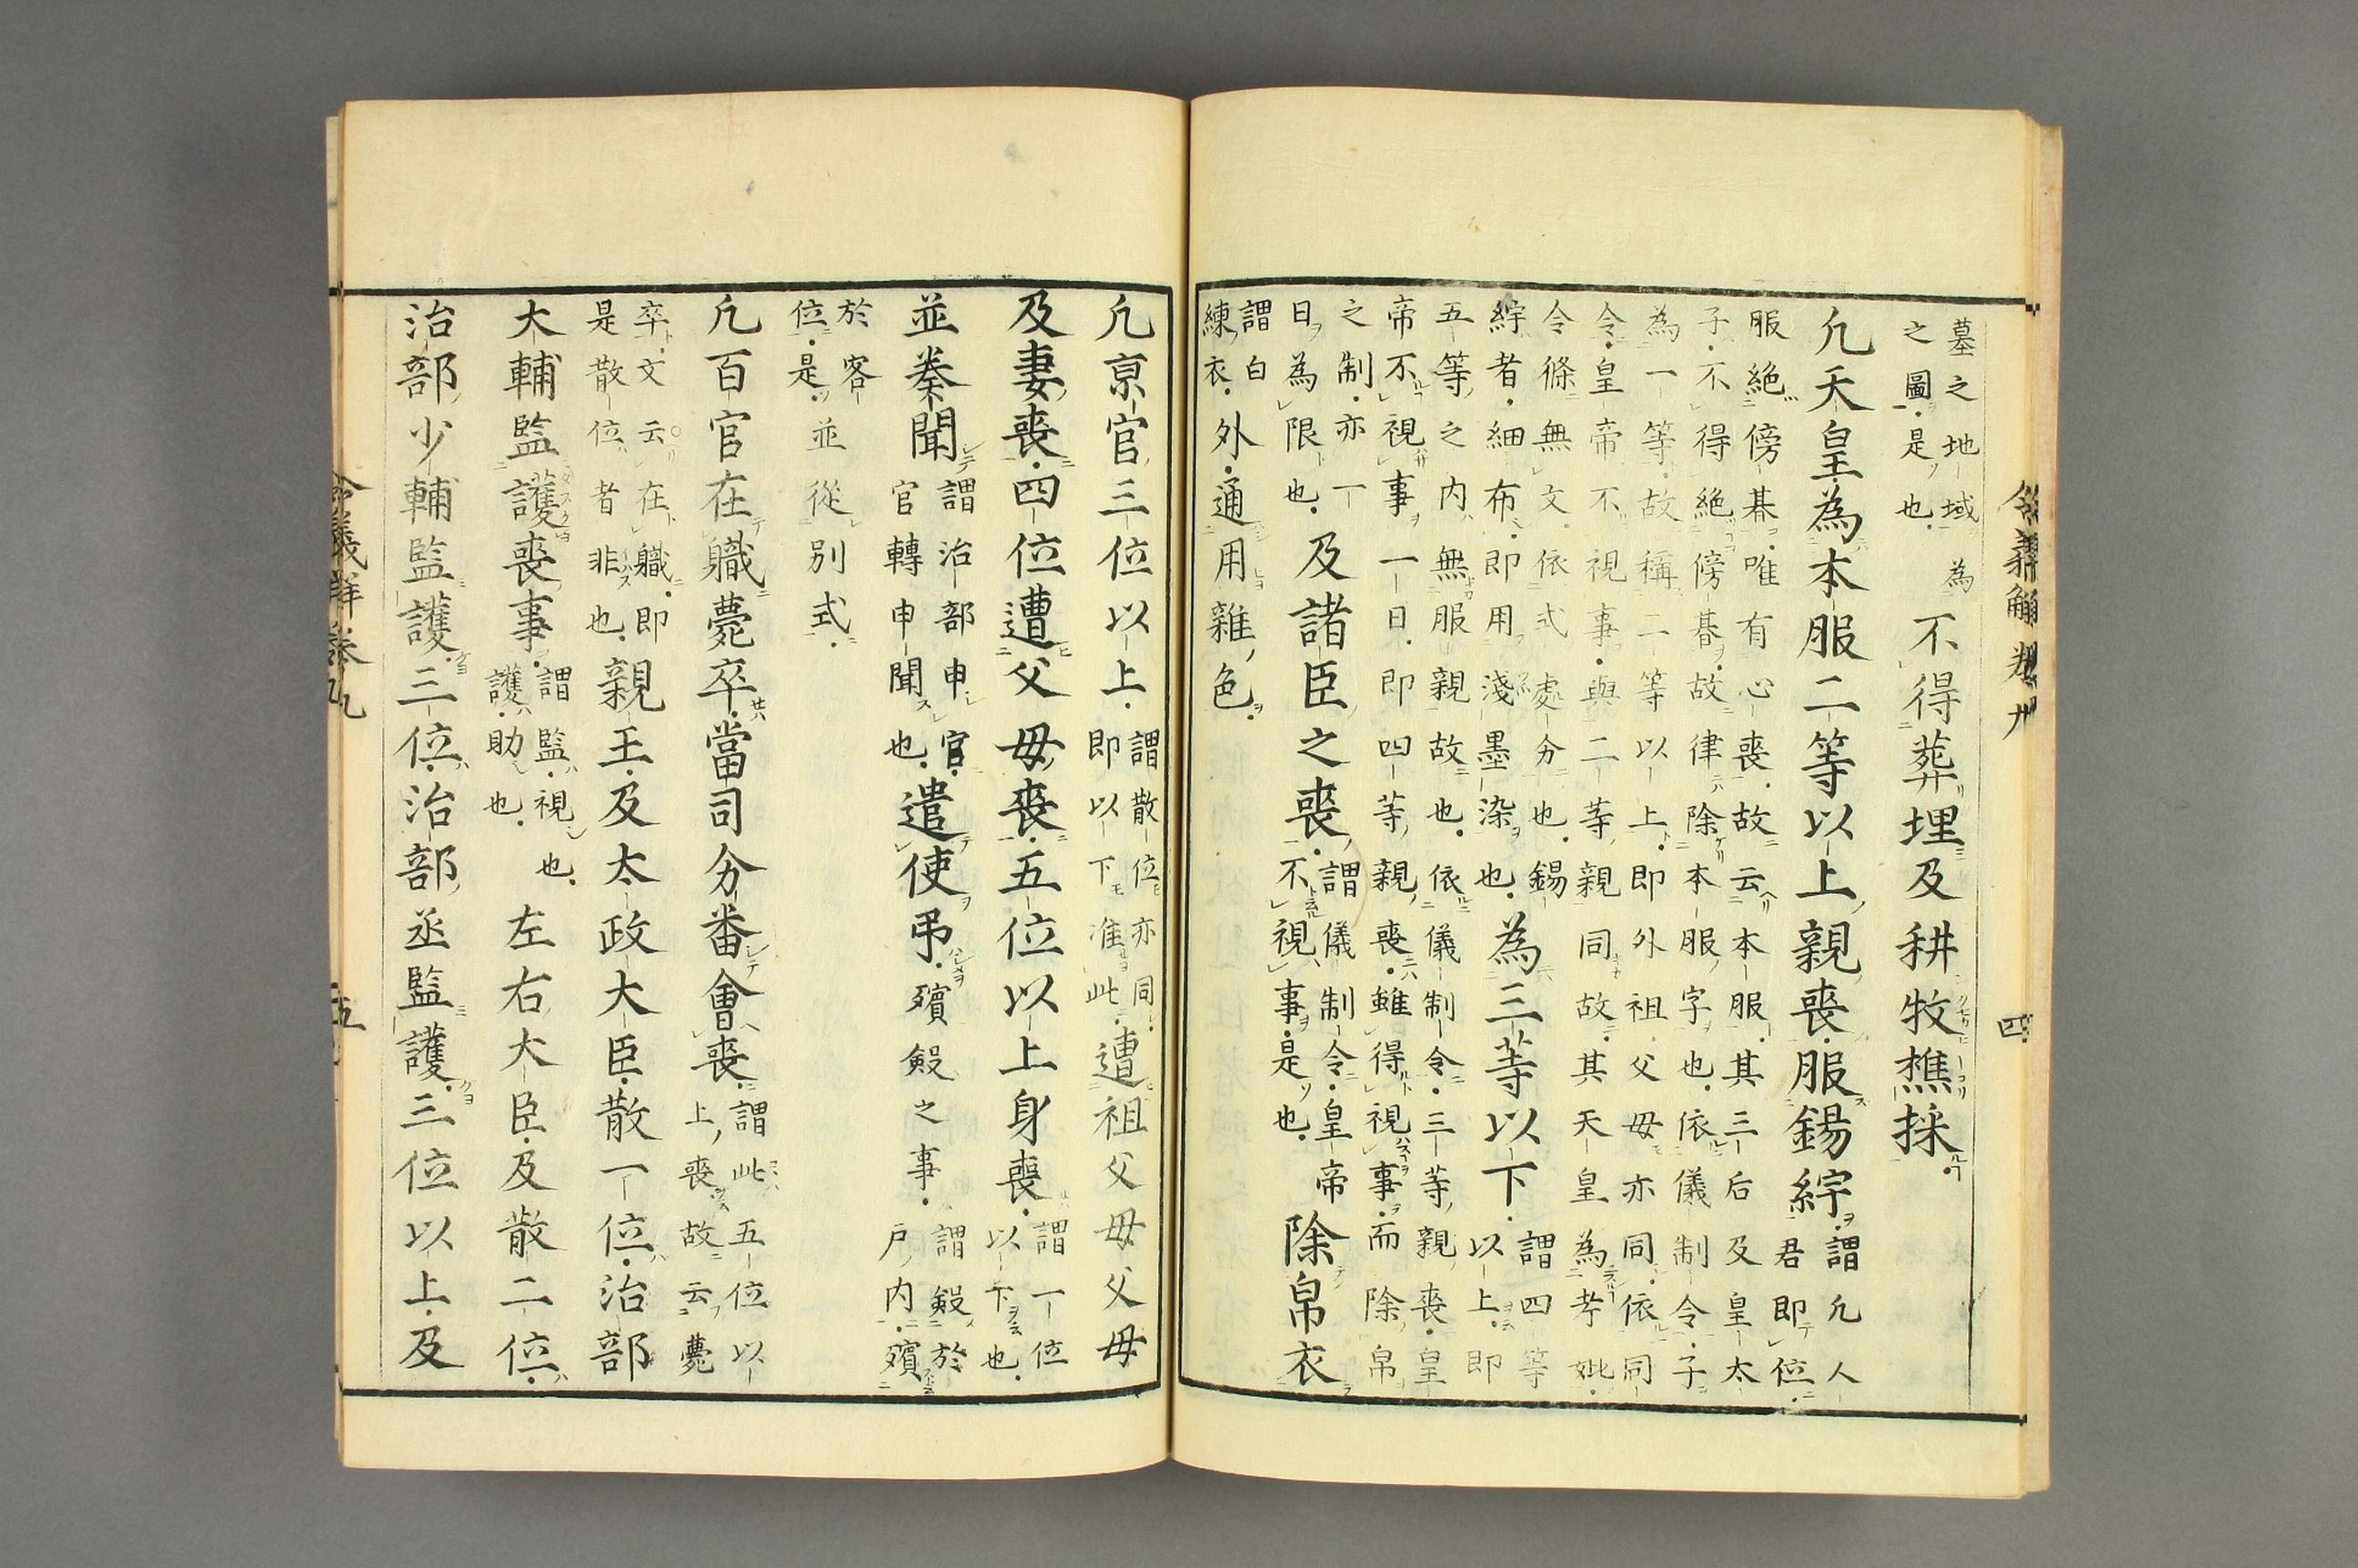 令義解卷九 四
墓之地域為之圖是也不得葬埋及耕牧樵採
凢天皇為本服二等以上親喪服錫紵謂凢人君即位
服絶傍朞唯有心喪故云本服其三后及皇太子不得絶傍朞故律除本服字也依儀制令子
為一等故稱二等以上即外祖父母亦同依同令皇帝不視事與二等親同故其天皇為考妣
令條無文依式處分也錫紵者細布即用淺墨染也為三等以下謂四等以上即
五等之内無服親故也依儀制令三等親喪皇帝不視事一日即四等親喪雖得視事而除帛
之制亦一日為限也及諸臣之喪謂儀制令皇帝不視事是也除帛衣
謂白練衣外通用雜色
凢京官三位以上謂散位亦同即以下准此遭祖父母父母
及妻喪四位遭父母喪五位以上身喪謂一位以下也
並奏聞謂治部申官官轉申聞也遣使弔殯殮之事謂殮於戸内殯
於客位是並從别式
凢百官在職薨卒當司分番會喪謂此五位以上喪故云薨
卒文云在職即是散位者非也親王及太政大臣散一位治部
大輔監護喪事謂監視也護助也左右大臣及散二位
治部少輔監護三位治部丞監護三位以上及
令義解卷九 五